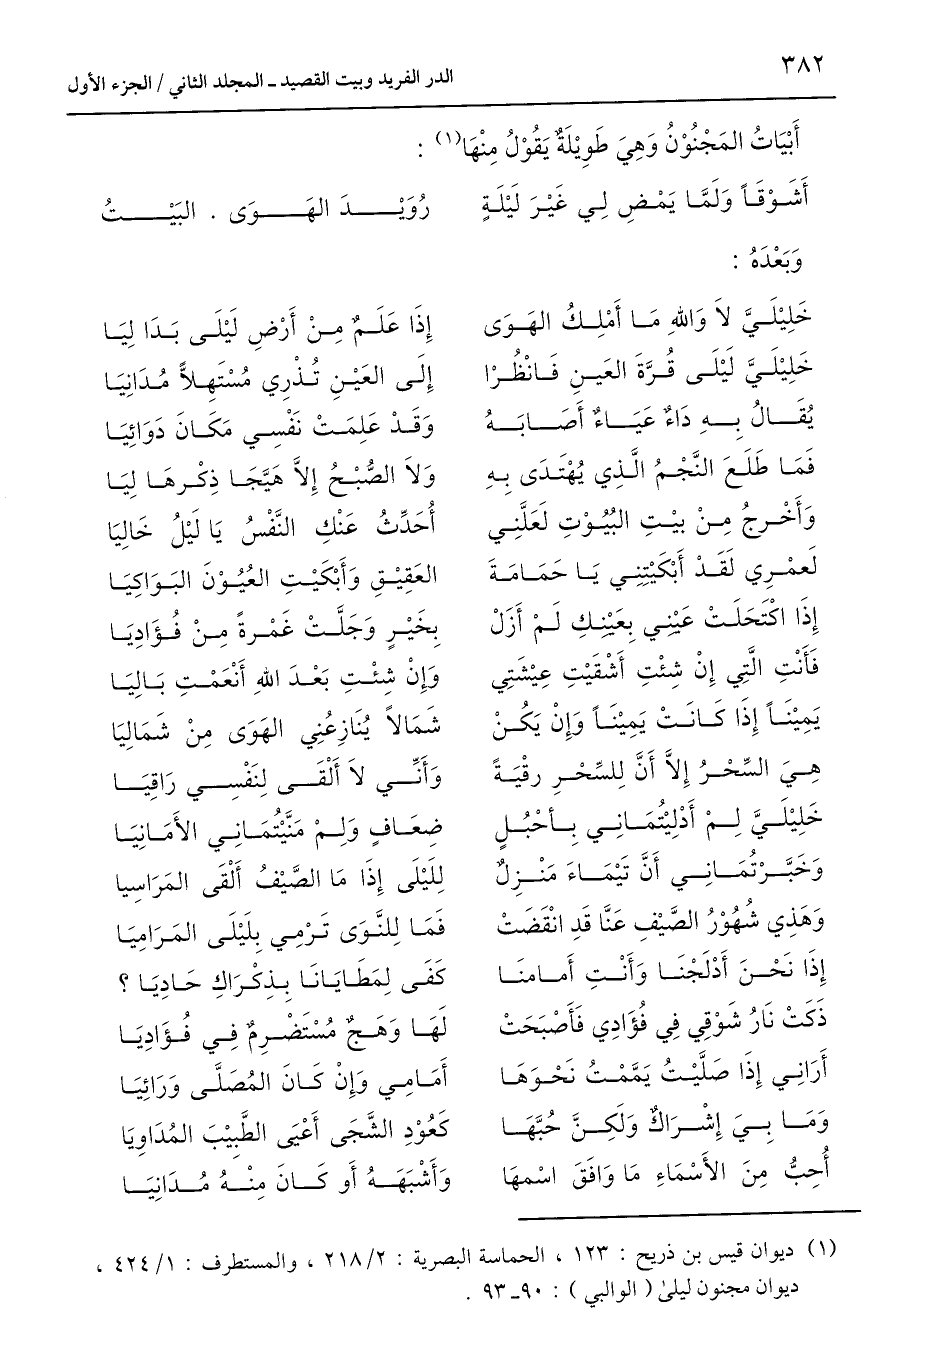 ٣٨٢
الدر الفريد وبيت القصيد ـ المجلد الثاني / الجزء الأول
أَبْيَاتُ المَجْنُوْنُ وَهِيَ طَوِيْلَةٌ يَقُوْلُ مِنْهَا(١) :
أَشَوْقَاً وَلَمَّا يَمْضِ لِي غَيْرَ لَيْلَةٍ رُوَيْدَ الهَوَى . البَيْتُ
وَبَعْدَهُ :
خَلِيْلَيَّ لاَ وَاللهِ مَا أَمْلِكُ الهَوَى إِذَا عَلَمٌ مِنْ أَرْضِ لَيْلَى بَدَا لِيَا
خَلِيْلَيَّ لَيْلَى قُرَّةَ العَيْنِ فَانْظُرْا إِلَى العَيْنِ تُذْرِي مُسْتَهِلاًّ مُدَانِيَا
يُقَالُ بِهِ دَاءٌ عَيَاءٌ أَصَابَهُ وَقَدْ عَلِمَتْ نَفْسِي مَكَانَ دَوَائِيَا
فَمَا طَلَعَ النَّجْمُ الَّذِي يُهْتَدَى بِهِ وَلاَ الصُّبْحُ إِلاَّ هَيَّجَا ذِكْرِهَا لِيَا
وَأَخْرِجُ مِنْ بَيْتِ البُيُوْتِ لَعَلَّنِي أُحَدِّثُ عَنْكِ النَّفْسُ يَا لَيْلُ خَالِيَا
لَعَمْرِي لَقَدْ أَبْكَيْتِنِي يَا حَمَامَةَ العَقِيْقِ وَأَبْكَيْتِ العُيُوْنَ البَوَاكِيَا
إِذَا اكْتَحَلَتْ عَيْنِي بِعَيْنِكِ لَمْ أَزَلْ بِخَيْرٍ وَجَلَّتْ غَمْرَةً مِنْ فُؤَادِيَا
فَأَنْتِ الَّتِي إِنْ شِئْتِ أَشْقَيْتِ عِيْشَتِي وَإِنْ شِئْتِ بَعْدَ اللهِ أَنْعَمْتِ بَالِيَا
يَمِيْنَاً إِذَا كَانَتْ يَمِيْنَاً وَإِنْ يَكُنْ شَمَالاً يُنَازِعُنِي الهَوَى مِنْ شَمَالِيَا
هِيَ السِّحْرُ إِلاَّ أَنَّ لِلسِّحْرِ رِقْيَةً وَأَنِّي لاَ أَلْقَى لِنَفْسِي رَاقِيَا
خَلِيْلَيَّ لِمْ أَدْلَيْتُمَانِي بِأَحْبُلٍ ضِعَافٍ وَلِمْ مَنَّيْتُمَانِي الأَمَانِيَا
وَخَبَّرْتُمَانِي أَنَّ تَيْمَاءَ مَنْزِلٌ لِلَيْلَى إِذَا مَا الصَّيْفُ أَلْقَى المَرَاسِيا
وَهَذِي شُهُوْرُ الصَّيْفِ عَنَّا قَدِ انْقَضَتْ فَمَا لِلنَّوَى تَرْمِي بِلَيْلَى المَرَامِيَا
إِذَا نَحْنُ أَدْلَجْنَا وَأَنْتِ أَمَامَنَا كَفَى لِمَطَايَانَا بِذِكْرَاكِ حَادِيَا ؟
ذَكَتْ نَارُ شَوْقِي فِي فُؤَادِي فَأَصْبَحَتْ لَهَا وَهَجٌ مُسْتَضْرِمٌ فِي فُؤَادِيَا
أَرَانِي إِذَا صَلَّيْتُ يَمَّمْتُ نَحْوَهَا أَمَامِي وَإِنْ كَانَ المُصَلَّى وَرَائِيَا
وَمَا بِيَ إِشْرَاكٌ وَلَكِنَّ حُبَّهَا كَعُوْدِ الشَّجَى أَعْيَى الطَّبِيْبَ المُدَاوِيَا
أُحِبُّ مِنَ الأَسْمَاءِ مَا وَافَقَ اسْمَهَا وَأَشْبَهَهُ أَو كَانَ مِنْهُ مُدَانِيَا
(١) ديوان قيس بن ذريح : ١٢٣ ، الحماسة البصرية : ٢/ ٢١٨ ، والمستطرف : ١/ ٤٢٤ ،
ديوان مجنون ليلىٰ ( الوالبي ) : ٩٠ـ٩٣ .